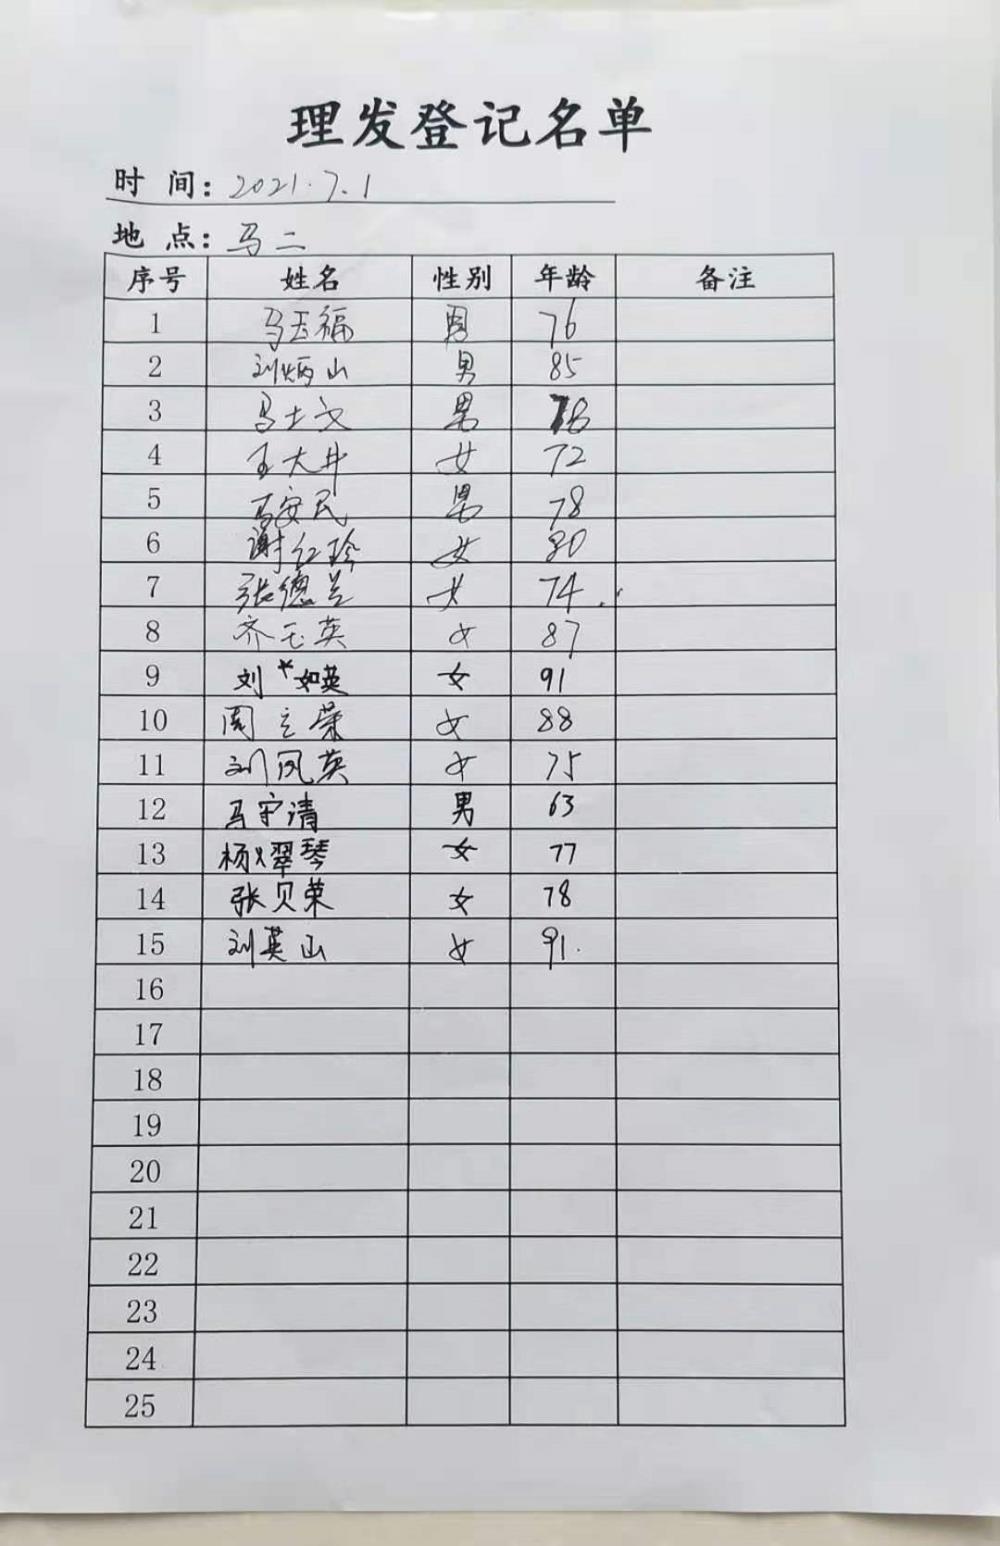 理发登记名单
时 间: 2021.7.1
地 点: 马二
序号 姓名 性别 年龄 备注
1 马玉福 男 76
2 刘炳山 男 85
3 马士文 男 78
4 王大井 女 72
5 马安民 男 78
6 谢红珍 女 80
7 张德兰 女 74
8 齐玉英 女 87
9 刘 如英 女 91
10 周立荣 女 88
11 刘凤英 女 75
12 马守请 男 63
13 杨翠琴 女 77
14 张贝荣 女 78
15 刘英山 女 91.
16
17
18
19
20
21
22
23
24
25